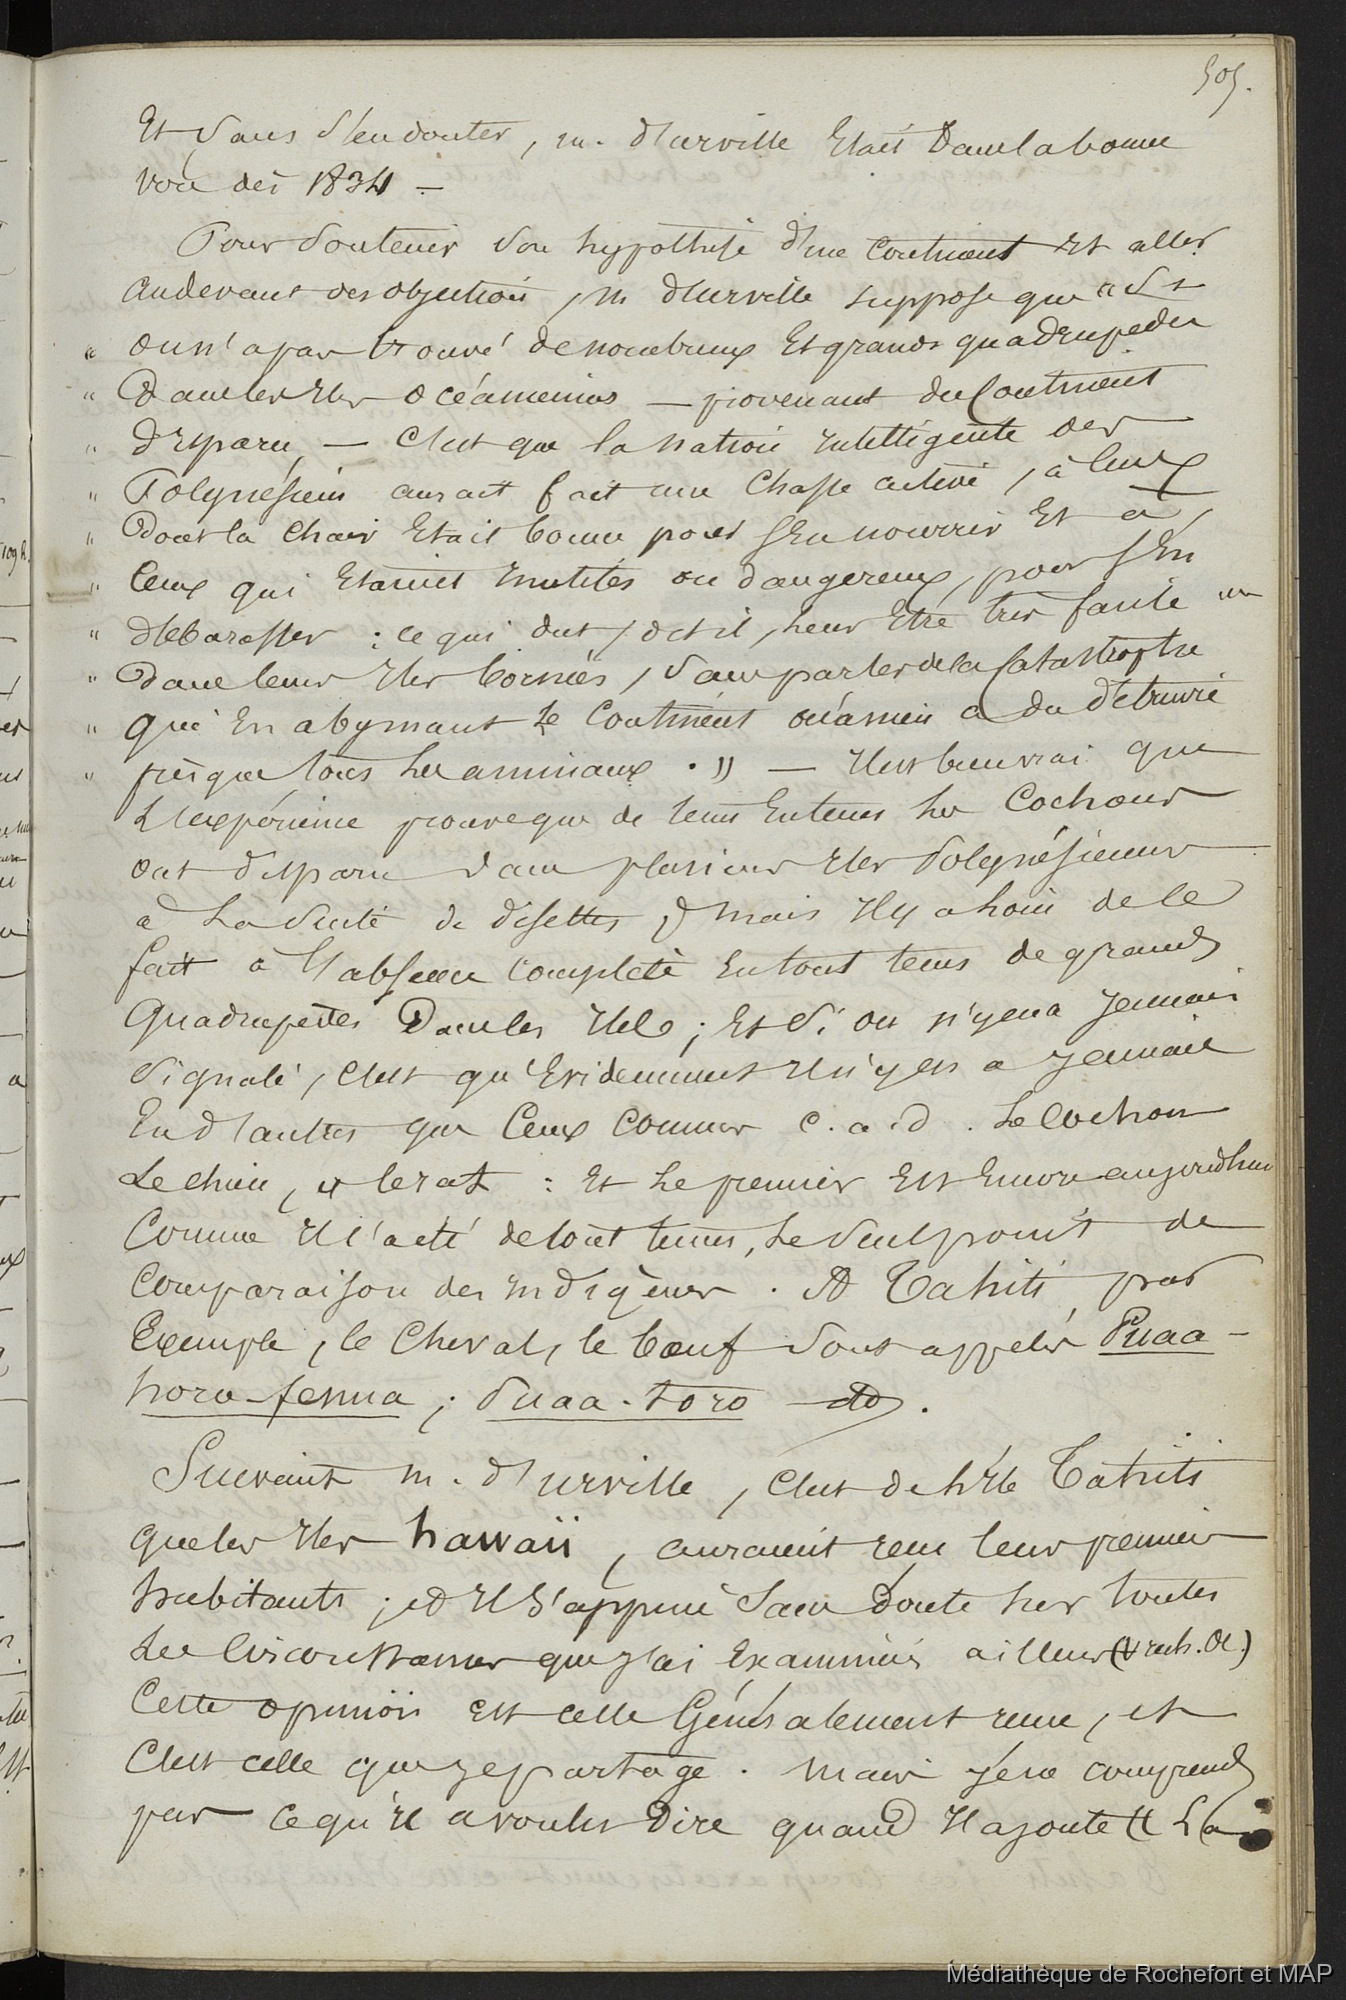 505.
Et sans s'en douter, m. d'urville Etait dans la bonne
voie dès 1834 —
Pour soutenir son hypothèse d'une Continent Et aller
audevant des objections, m d'urville suppose que "Si
" on n'a pas trouvé de nombreux Et grands quadrupedes
" Dans les Iles Océaniennes — provenant du Continent
" disparu, — C'est que la nation intelligente des
" Polynésiens aurait fait une Chasse active, à Ceux
" Dont la Chair Etait bonne pour s'En nourrir Et à
" Ceux qui Etaient inutiles ou dangereux, pour s'En
" débarasser : ce qui dut, dit-il, leur Etre très facile
" dans leurs Iles bornées, sans parler de la Catastrophe
" qui En abymant le Continent océanien a du détruire
" presque tous les animaux . " — Il est bien vrai que
L'expérience prouve que de tems En tems les Cochons
ont disparu dans plusieurs Iles Polynésiennes
à La suite de disettes, mais Il y a loin de ce
fait à l'absence Complète En tout tems de grands
Quadrupedes Dans les Iles ; Et si on n'y en a jamais
signalé, C'est qu'Evidemment Il n'y en a jamais
Eu d'autres que Ceux connus c. a. d. Le Cochon
Le chien, et le rat : Et Le premier Est Encore aujourd'hui
Comme Il l'a été de tout tems, Le seul point de
Comparaison des indigènes . A Tahiti par
Exemple, le Cheval, le bœuf sont appelés Puaa-
horo-fenua ; Puaa-toro etc.
Suivant m. d'urville, C'est de l'Ile Tahiti
que les Iles hawaii, auraient reçu leurs premiers
habitants ; et Il s'appuie sans doute sur toutes
Les Circonstances que j'ai Examinées ailleurs (V rech. Or.)
Cette opinion est celle Généralement reçue, et
C'est celle que je partage . Mais je ne comprends
pas ce qu'Il a voulu dire quand Il ajoute " La
Médiathèque de Rochefort et MAP